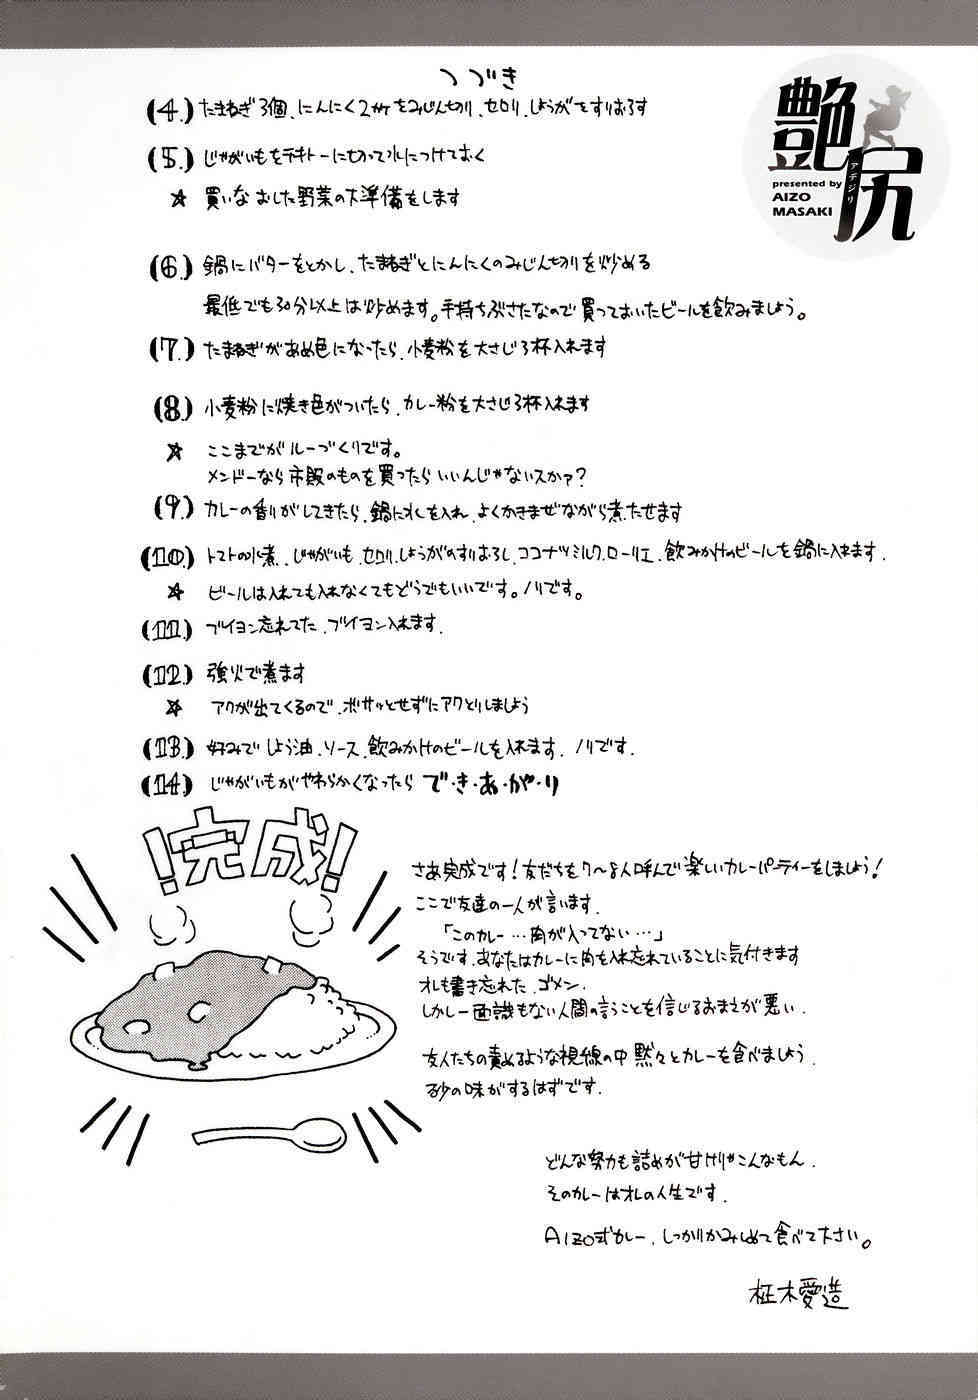 つづき
(4.) たまねぎ3個、にんにく2かけをみじん切り、セロリ、しょうがをすりおろす
(5.) じゃがいもをテキトーに切って水につけておく
☆ 買いなおした野菜の下準備をします
(6.) 鍋にバターをとかし、たまねぎとにんにくのみじん切りを炒める
最低でも30分以上は炒めます。手持ちぶさたなので買っておいたビールを飲みましょう。
(7.) たまねぎがあめ色になったら、小麦粉を大さじ3杯入れます
(8.) 小麦粉に焼き色がついたら、カレー粉を大さじ3杯入れます
☆ ここまでがルーづくりです。
メンドーなら市販のものを買ったらいいんじゃないスかァ?
(9.) カレーの香りがしてきたら、鍋に水を入れ、よくかきまぜながら煮たせます
(10.) トマトの水煮、じゃがいも、セロリ、しょうがのすりおろし、ココナツミルク、ローリエ、飲みかけのビールを鍋に入れます.
☆ ビールは入れても入れなくてもどうでもいいです。ノリです。
(11.) ブイヨン忘れてた、ブイヨン入れます.
(12.) 強火で煮ます
☆ アクが出てくるので、ボサッとせずにアクとりしましょう
(13.) 好みでしょう油、ソース、飲みかけのビールを入れます. ノリです.
(14.) じゃがいもがやわらかくなったら で・き・あ・が・り
!完成!
さあ完成です!友だちを7〜8人呼んで楽しいカレーパーティーをしましょう!
ここで友達の一人が言います.
「このカレー…肉が入ってない…」
そうです、あなたはカレーに肉を入れ忘れていることに気付きます
オレも書き忘れた、ゴメン.
しかし一面識もない人間の言うことを信じるおまえが悪い.
友人たちの責めるような視線の中 黙々とカレーを食べましょう.
砂の味がするはずです.
どんな努力も詰めが甘けりゃこんなもん.
そのカレーはオレの人生です.
AIZO式カレー、しっかりかみしめて食べて下さい。
柾木愛造
艶尻
アデジリ
presented by
AIZO
MASAKI